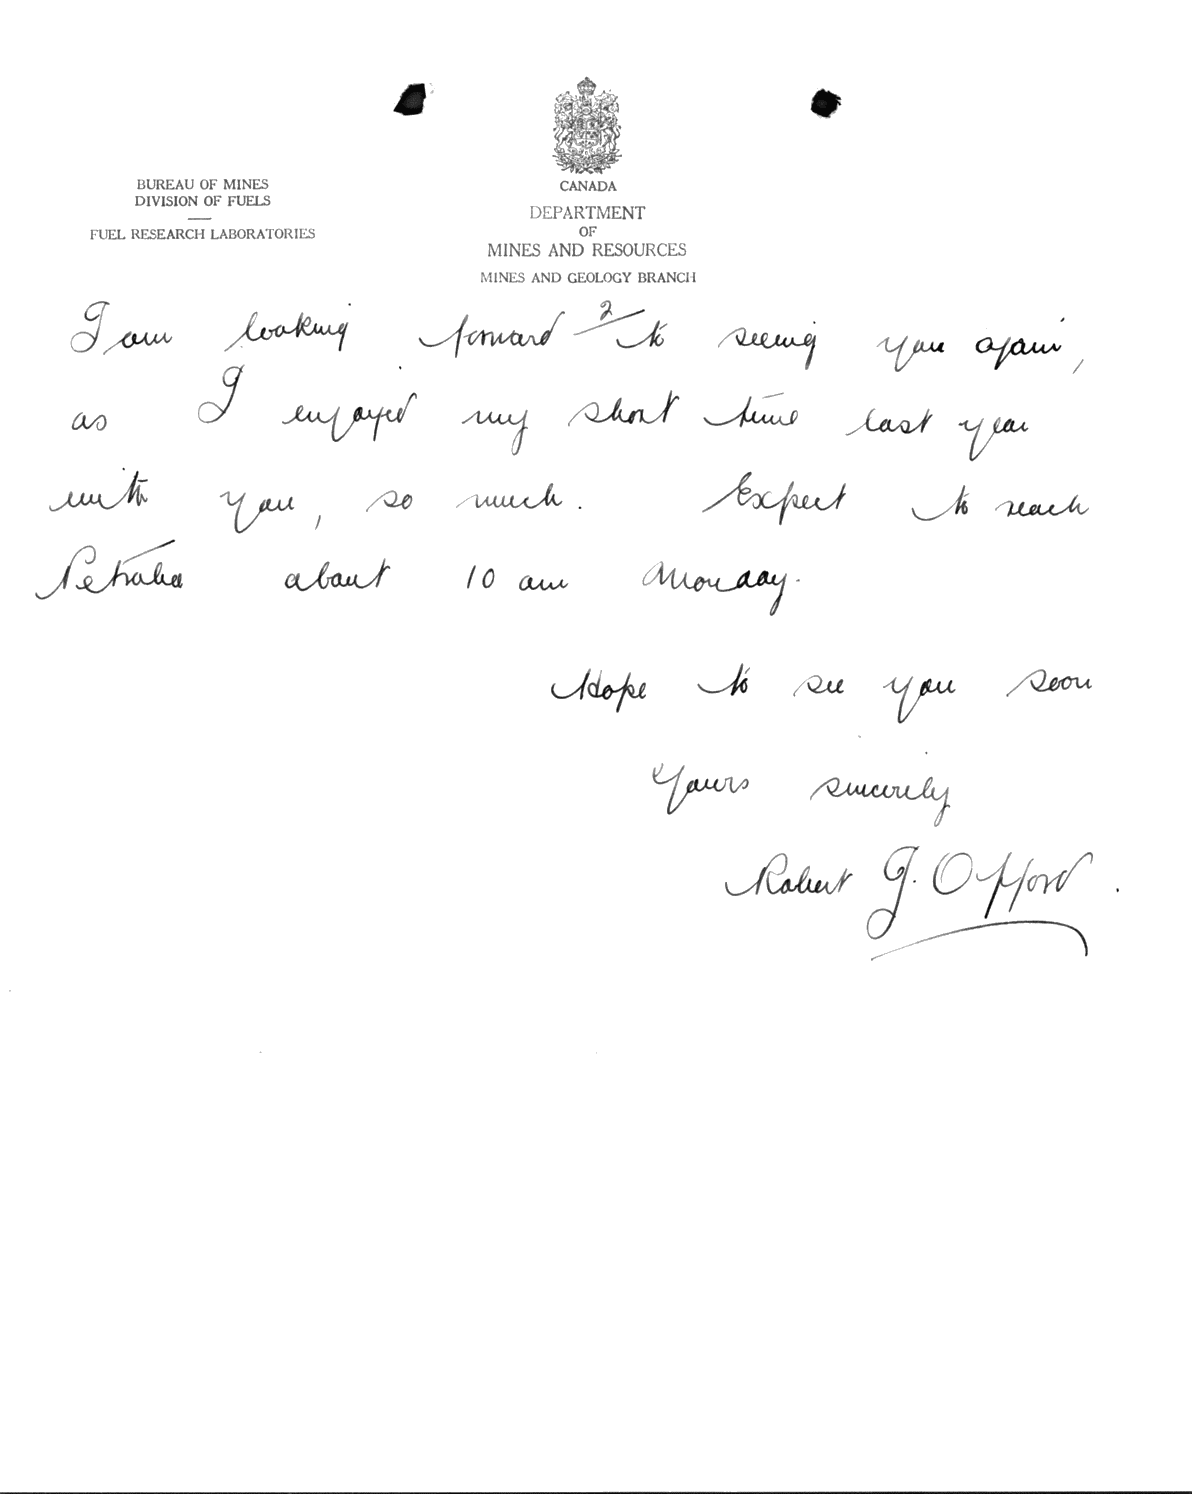 BUREAU OF MINES
DIVISION OF FUELS
FUEL RESEARCH LABORATORIES
CANADA
DEPARTMENT
OF
MINES AND RESOURCES
MINES AND GEOLOGY BRANCH
2
I am looking forward to seeing you again,
as I enjoyed my short time last year
with you, so much. Expect to reach
Petrolia about 10 am Monday.
Hope to see you soon
Yours sincerely
Robert J. Offord.